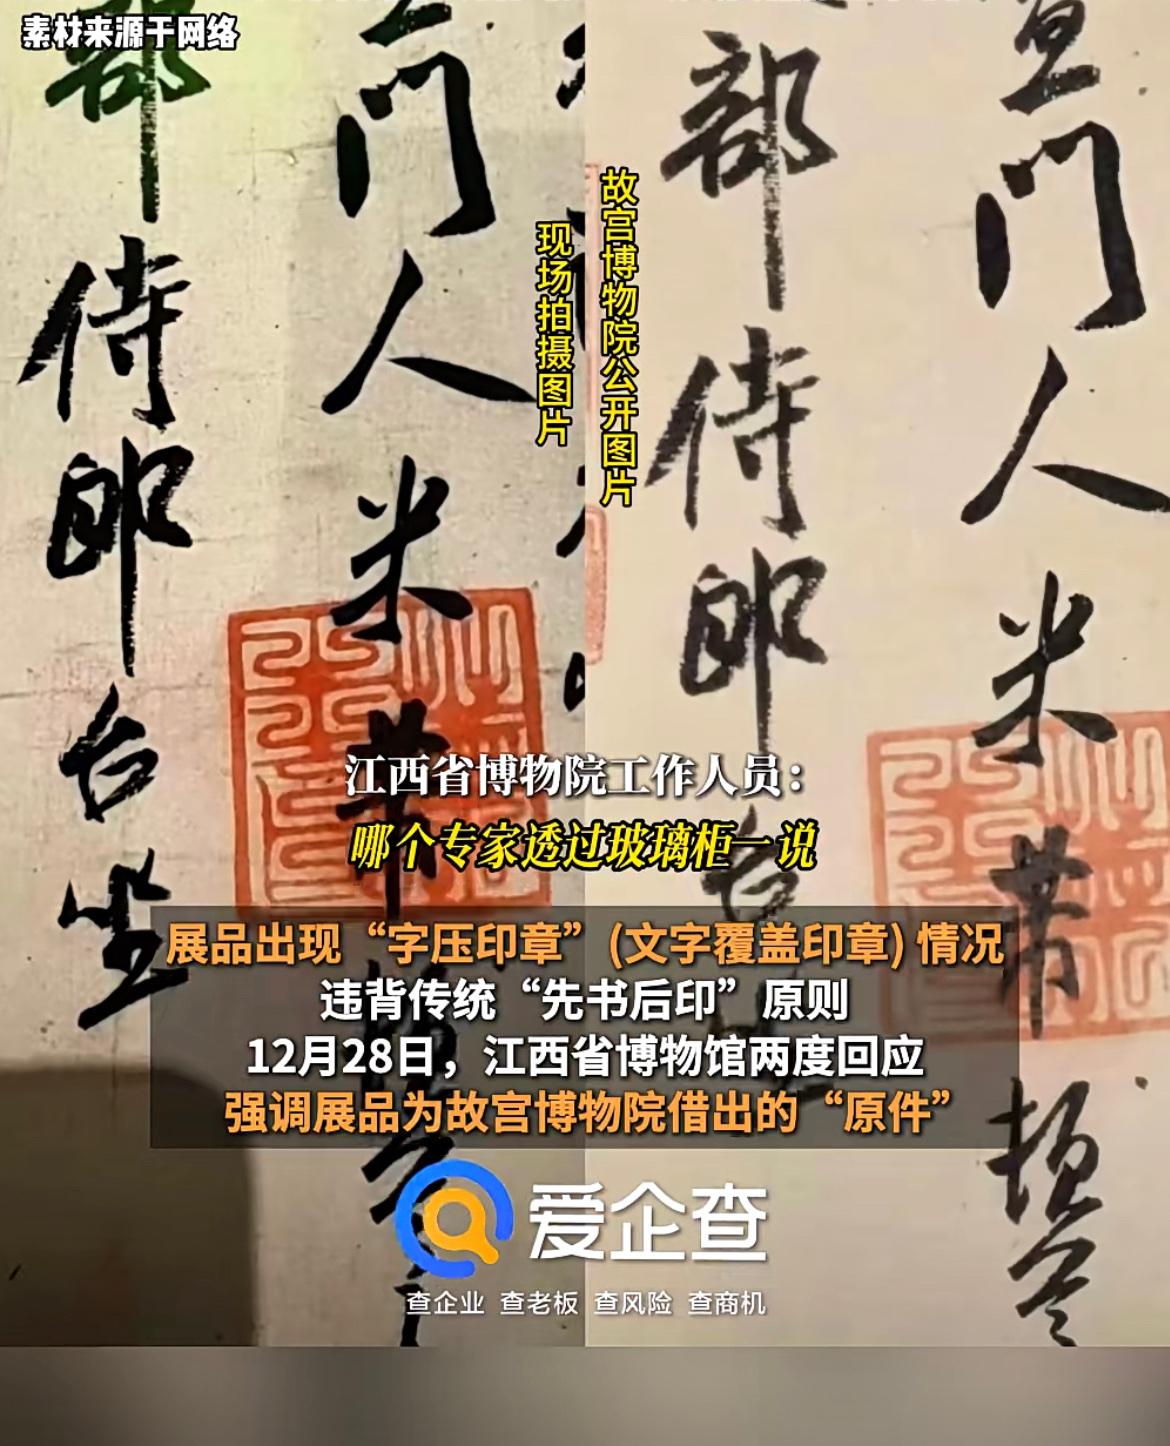 素材来源于网络
部侍郎台坐
门人米芾顿首
现场拍摄图片
故宫博物院公开图片
部侍郎台
门人米芾顿首
江西省博物院工作人员：
哪个专家透过玻璃柜一说
展品出现“字压印章”(文字覆盖印章)情况
违背传统“先书后印”原则
12月28日，江西省博物馆两度回应
强调展品为故宫博物院借出的“原件”
爱企查
查企业 查老板 查风险 查商机